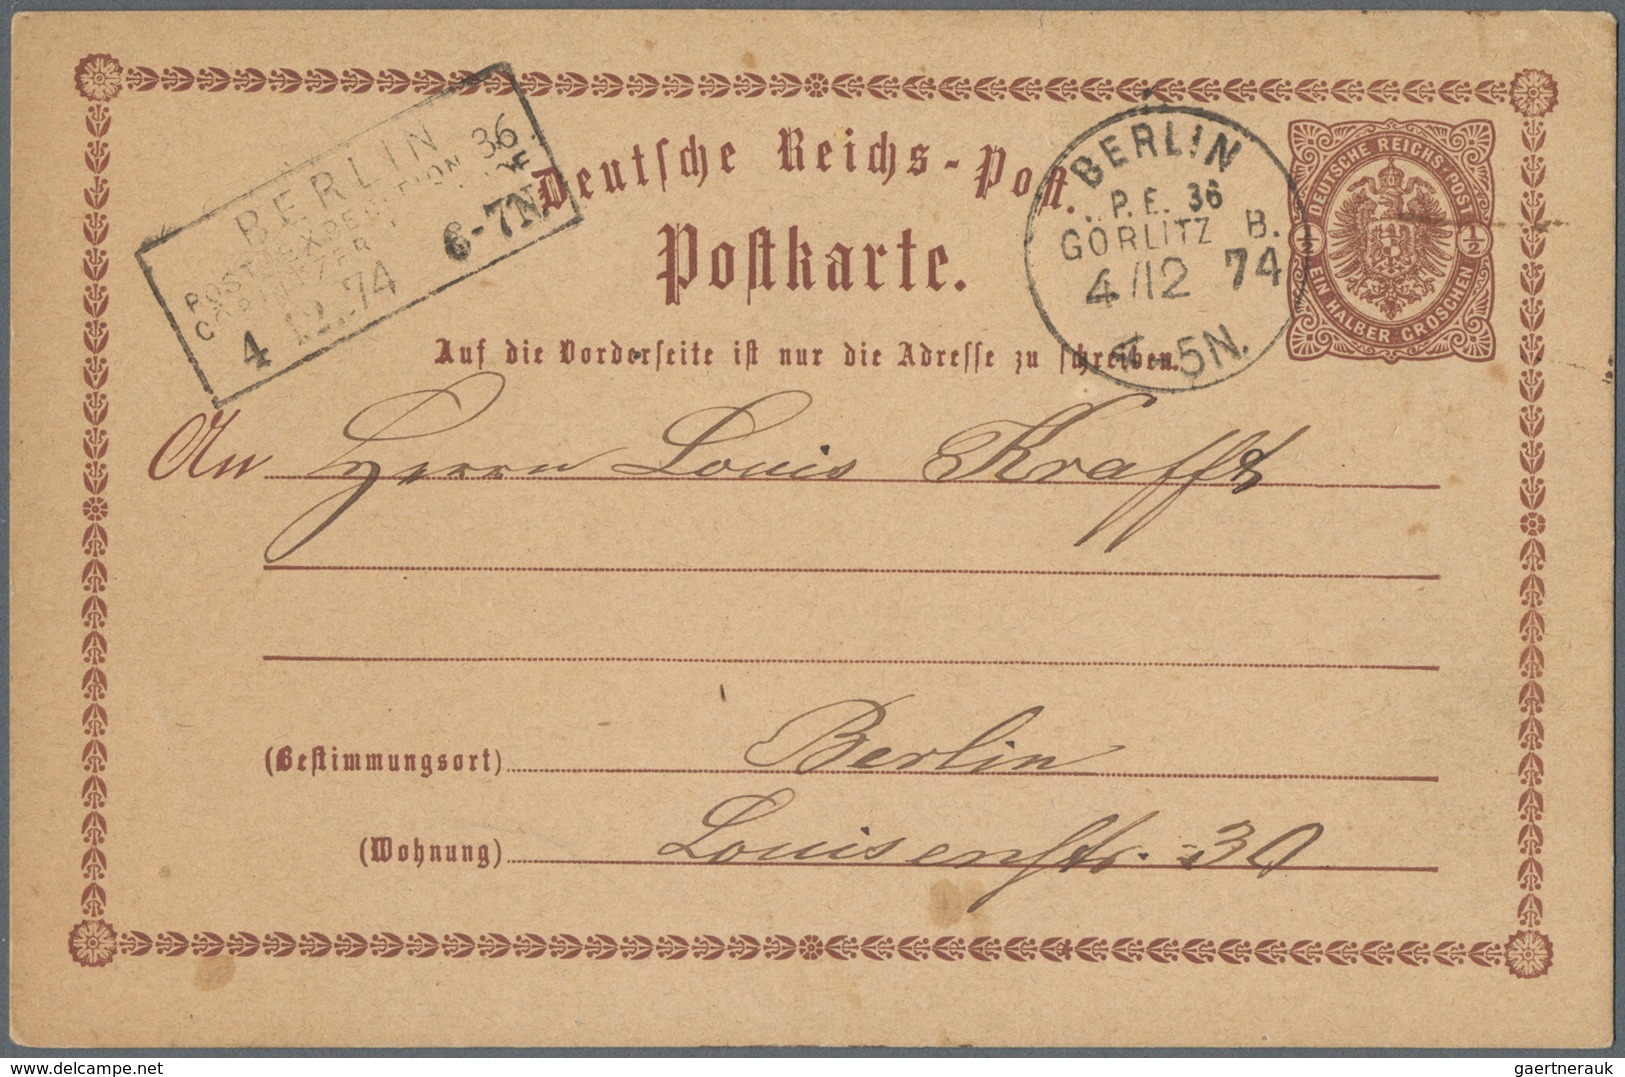 BERLIN
POST-EXPEDITION 36
4 12.74 6-7N
Deutsche Reichs-Post.
Postkarte.
BERLIN
P.E. 36
GÖRLITZ B.
4/12 74
5N.
DEUTSCHE REICHS-POST
½ ½
EIN HALBER GROSCHEN
Auf die Vorderseite ist nur die Adresse zu schreiben.
An Herrn Louis Krafft
(Bestimmungsort) Berlin
(Wohnung) Louisenstr. 30
gaertnerauk